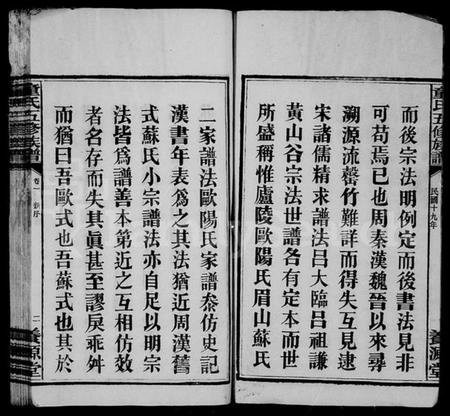 童氏五修族譜
民國十九年
養源堂
而後宗法明例定而後書法見非
可苟焉已也周秦漢魏晉以來尋
溯源流罄竹難詳而得失互見逮
宋諸儒精求譜法呂大臨呂祖謙
黃山谷宗法世譜各有定本而世
所盛稱惟廬陵歐陽氏眉山蘇氏
二家譜法歐陽氏家譜叅仿史記
漢書年表爲之其法猶近周漢舊
式蘇氏小宗譜法亦自足以明宗
法皆爲譜善本第近之互相仿效
者名存而失其眞甚至謬戾乖舛
而猶曰吾歐式也吾蘇式也其於
童氏五修族譜
卷一
二
養源堂